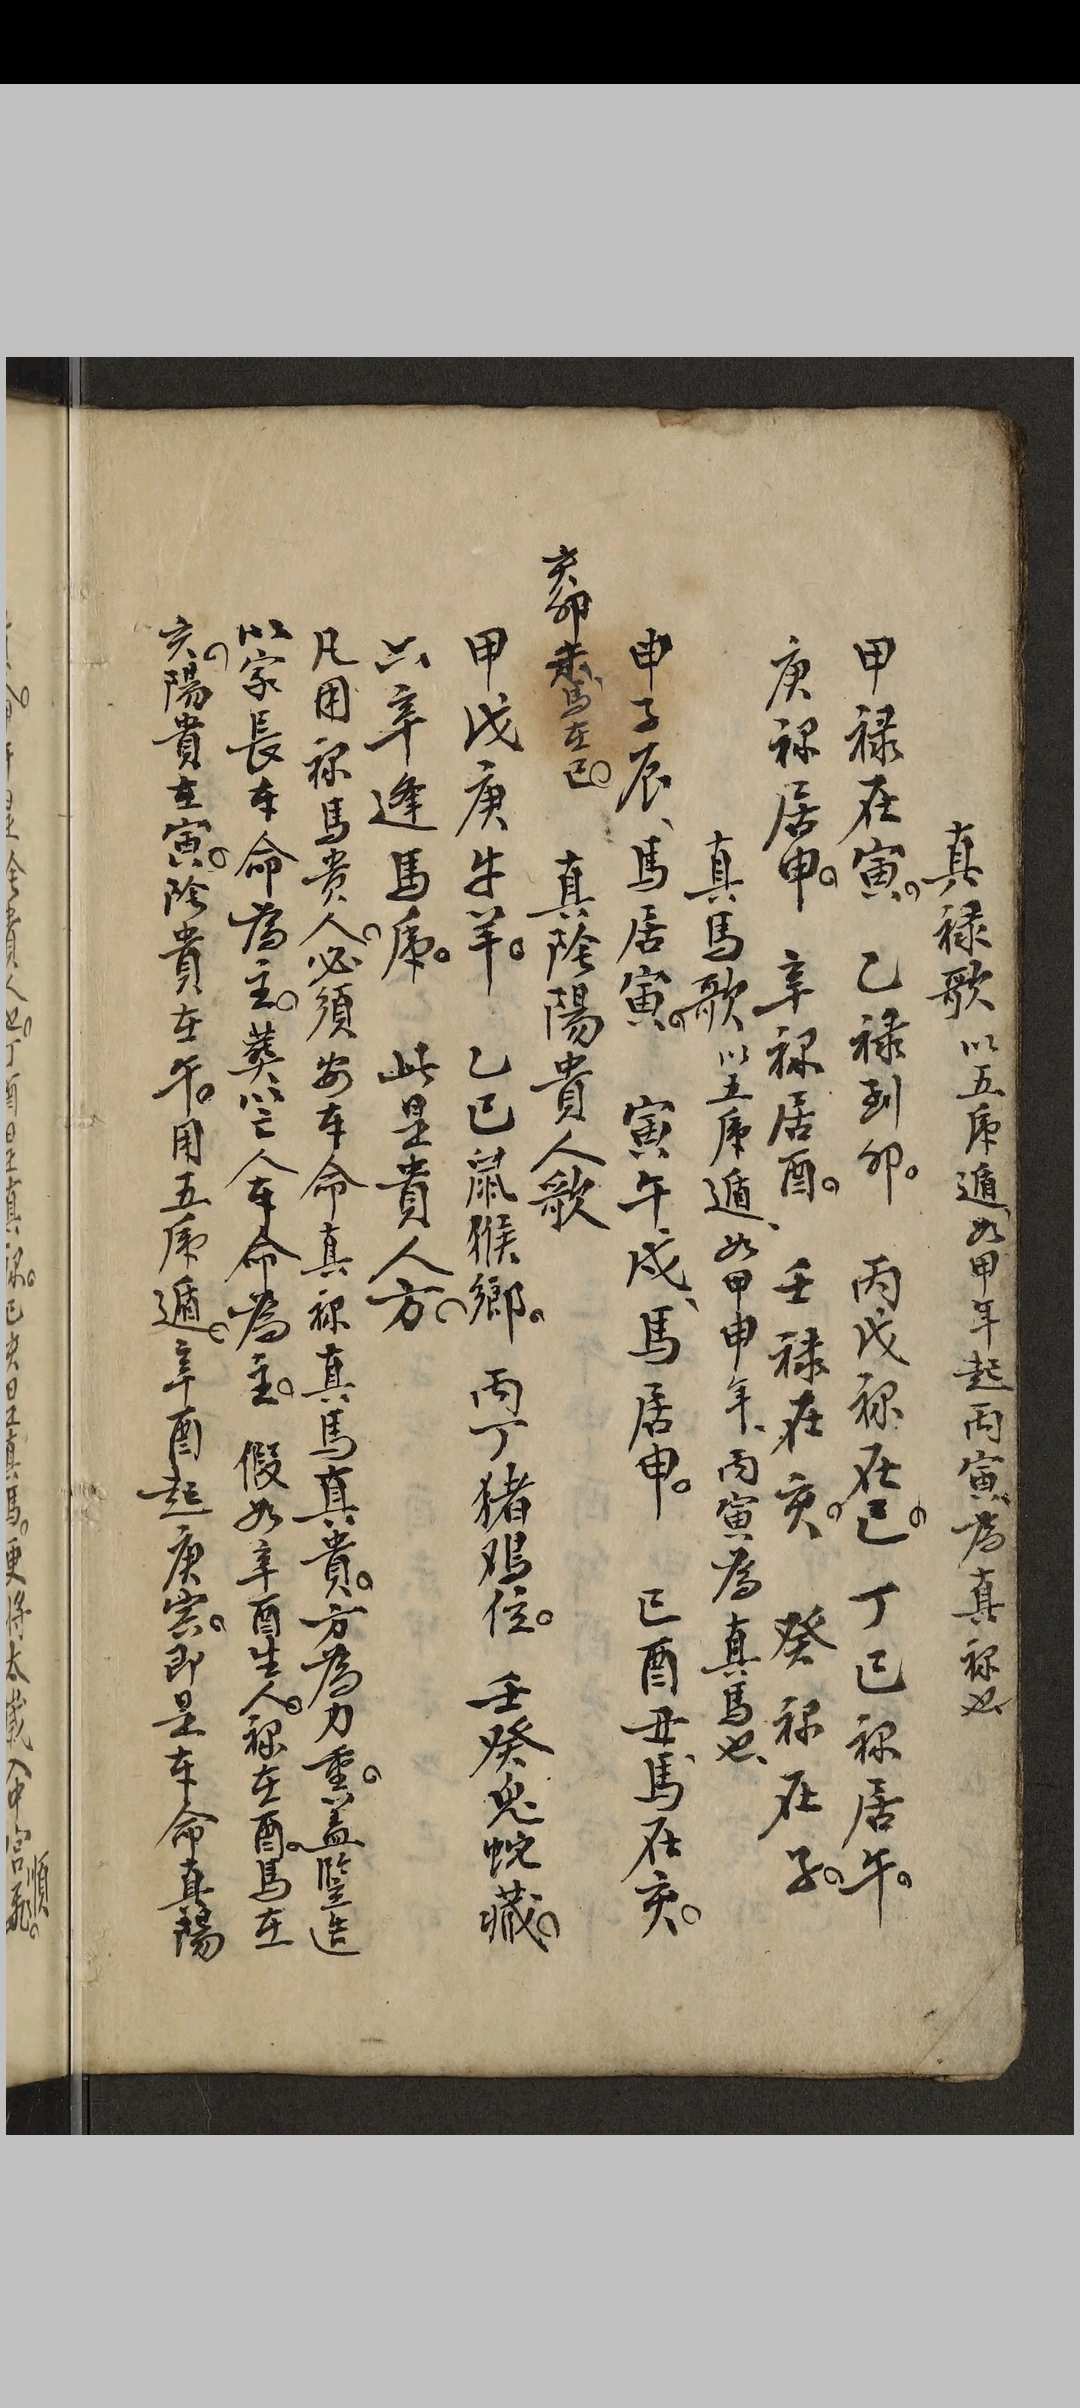 真禄歌 以五虎遁、如甲年起丙寅、為真禄也、
甲禄在寅。乙禄到卯。丙戊禄在巳。丁己禄居午。
庚禄居申。辛禄居酉。壬禄在亥。癸禄在子。
真馬歌 以五虎遁、如甲申年、丙寅為真馬也、
申子辰、馬居寅。寅午戌、馬居申。巳酉丑、馬在亥。
亥卯未、馬在巳。
真陰陽貴人歌
甲戊庚牛羊。乙己鼠猴鄉。丙丁猪鸡位。壬癸兔蛇藏。
六辛逢馬虎。此是貴人方。
凡用禄馬贵人。必須安本命真禄真馬真貴。方為力重。蓋豎造
以家長本命為主。葬以亡人本命為主。假如辛酉生人。禄在酉。馬在
亥。陽貴在寅。陰貴在午。用五虎遁。辛酉起庚寅。即是本命真陽
是全貴人也。丁酉是真禄。己亥是真馬。更将太歲入中宮順飛。